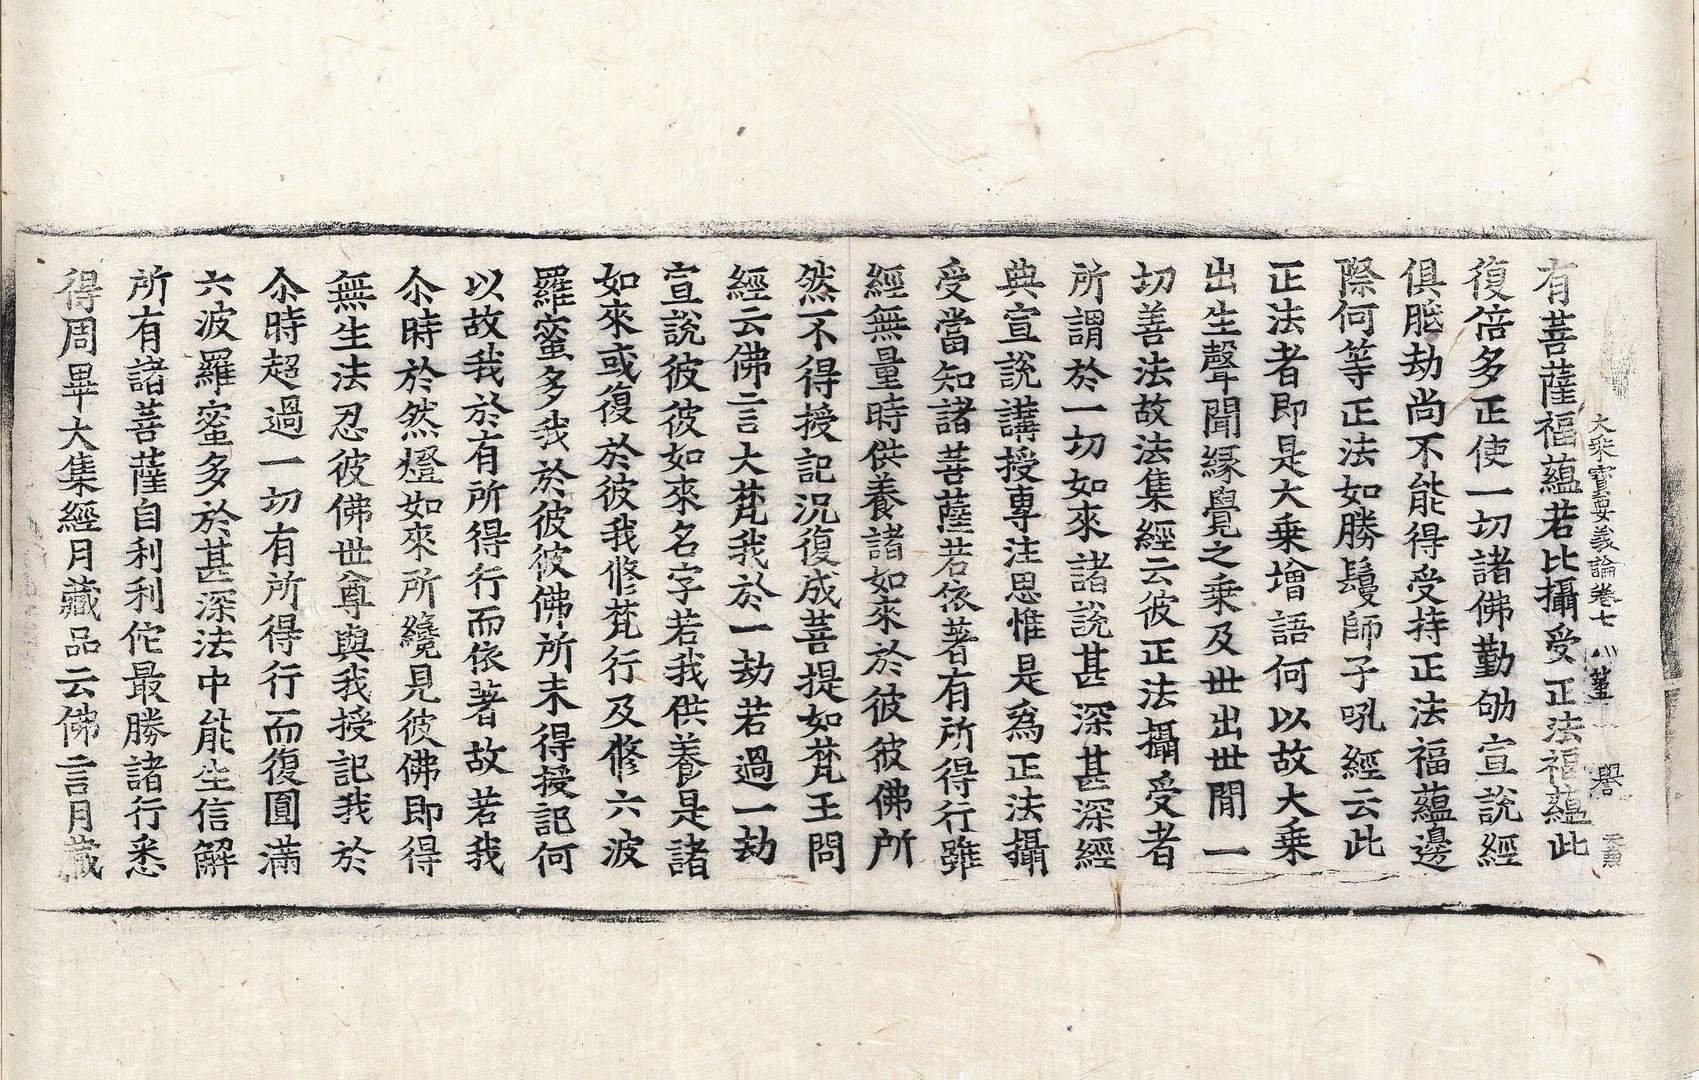 大乗寳要義論卷七 八
有菩薩福蘊若比攝受正法福蘊此
復倍多正使一切諸佛勤劬宣說經
俱胝劫尚不能得受持正法福蘊邊
際何等正法如勝鬘師子吼經云此
正法者即是大乗增語何以故大乗
出生聲聞縁覺之乗及世出世閒一
切善法故法集經云彼正法攝受者
所謂於一切如來諸說甚深甚深經
典宣說講授專注思惟是爲正法攝
受當知諸菩薩若依著有所得行雖
經無量時供養諸如來於彼彼佛所
然不得授記況復成菩提如梵王問
經云佛言大梵我於一劫若過一劫
宣說彼彼如來名字若我供養是諸
如來或復於彼我修梵行及修六波
羅蜜多我於彼彼佛所未得授記何
以故我於有所得行而依著故若我
尒時於然燈如來所纔見彼佛即得
無生法忍彼佛世尊與我授記我於
尒時超過一切有所得行而復圓滿
六波羅蜜多於甚深法中能生信解
所有諸菩薩自利利佗最勝諸行悉
得周畢大集經月藏品云佛言月藏